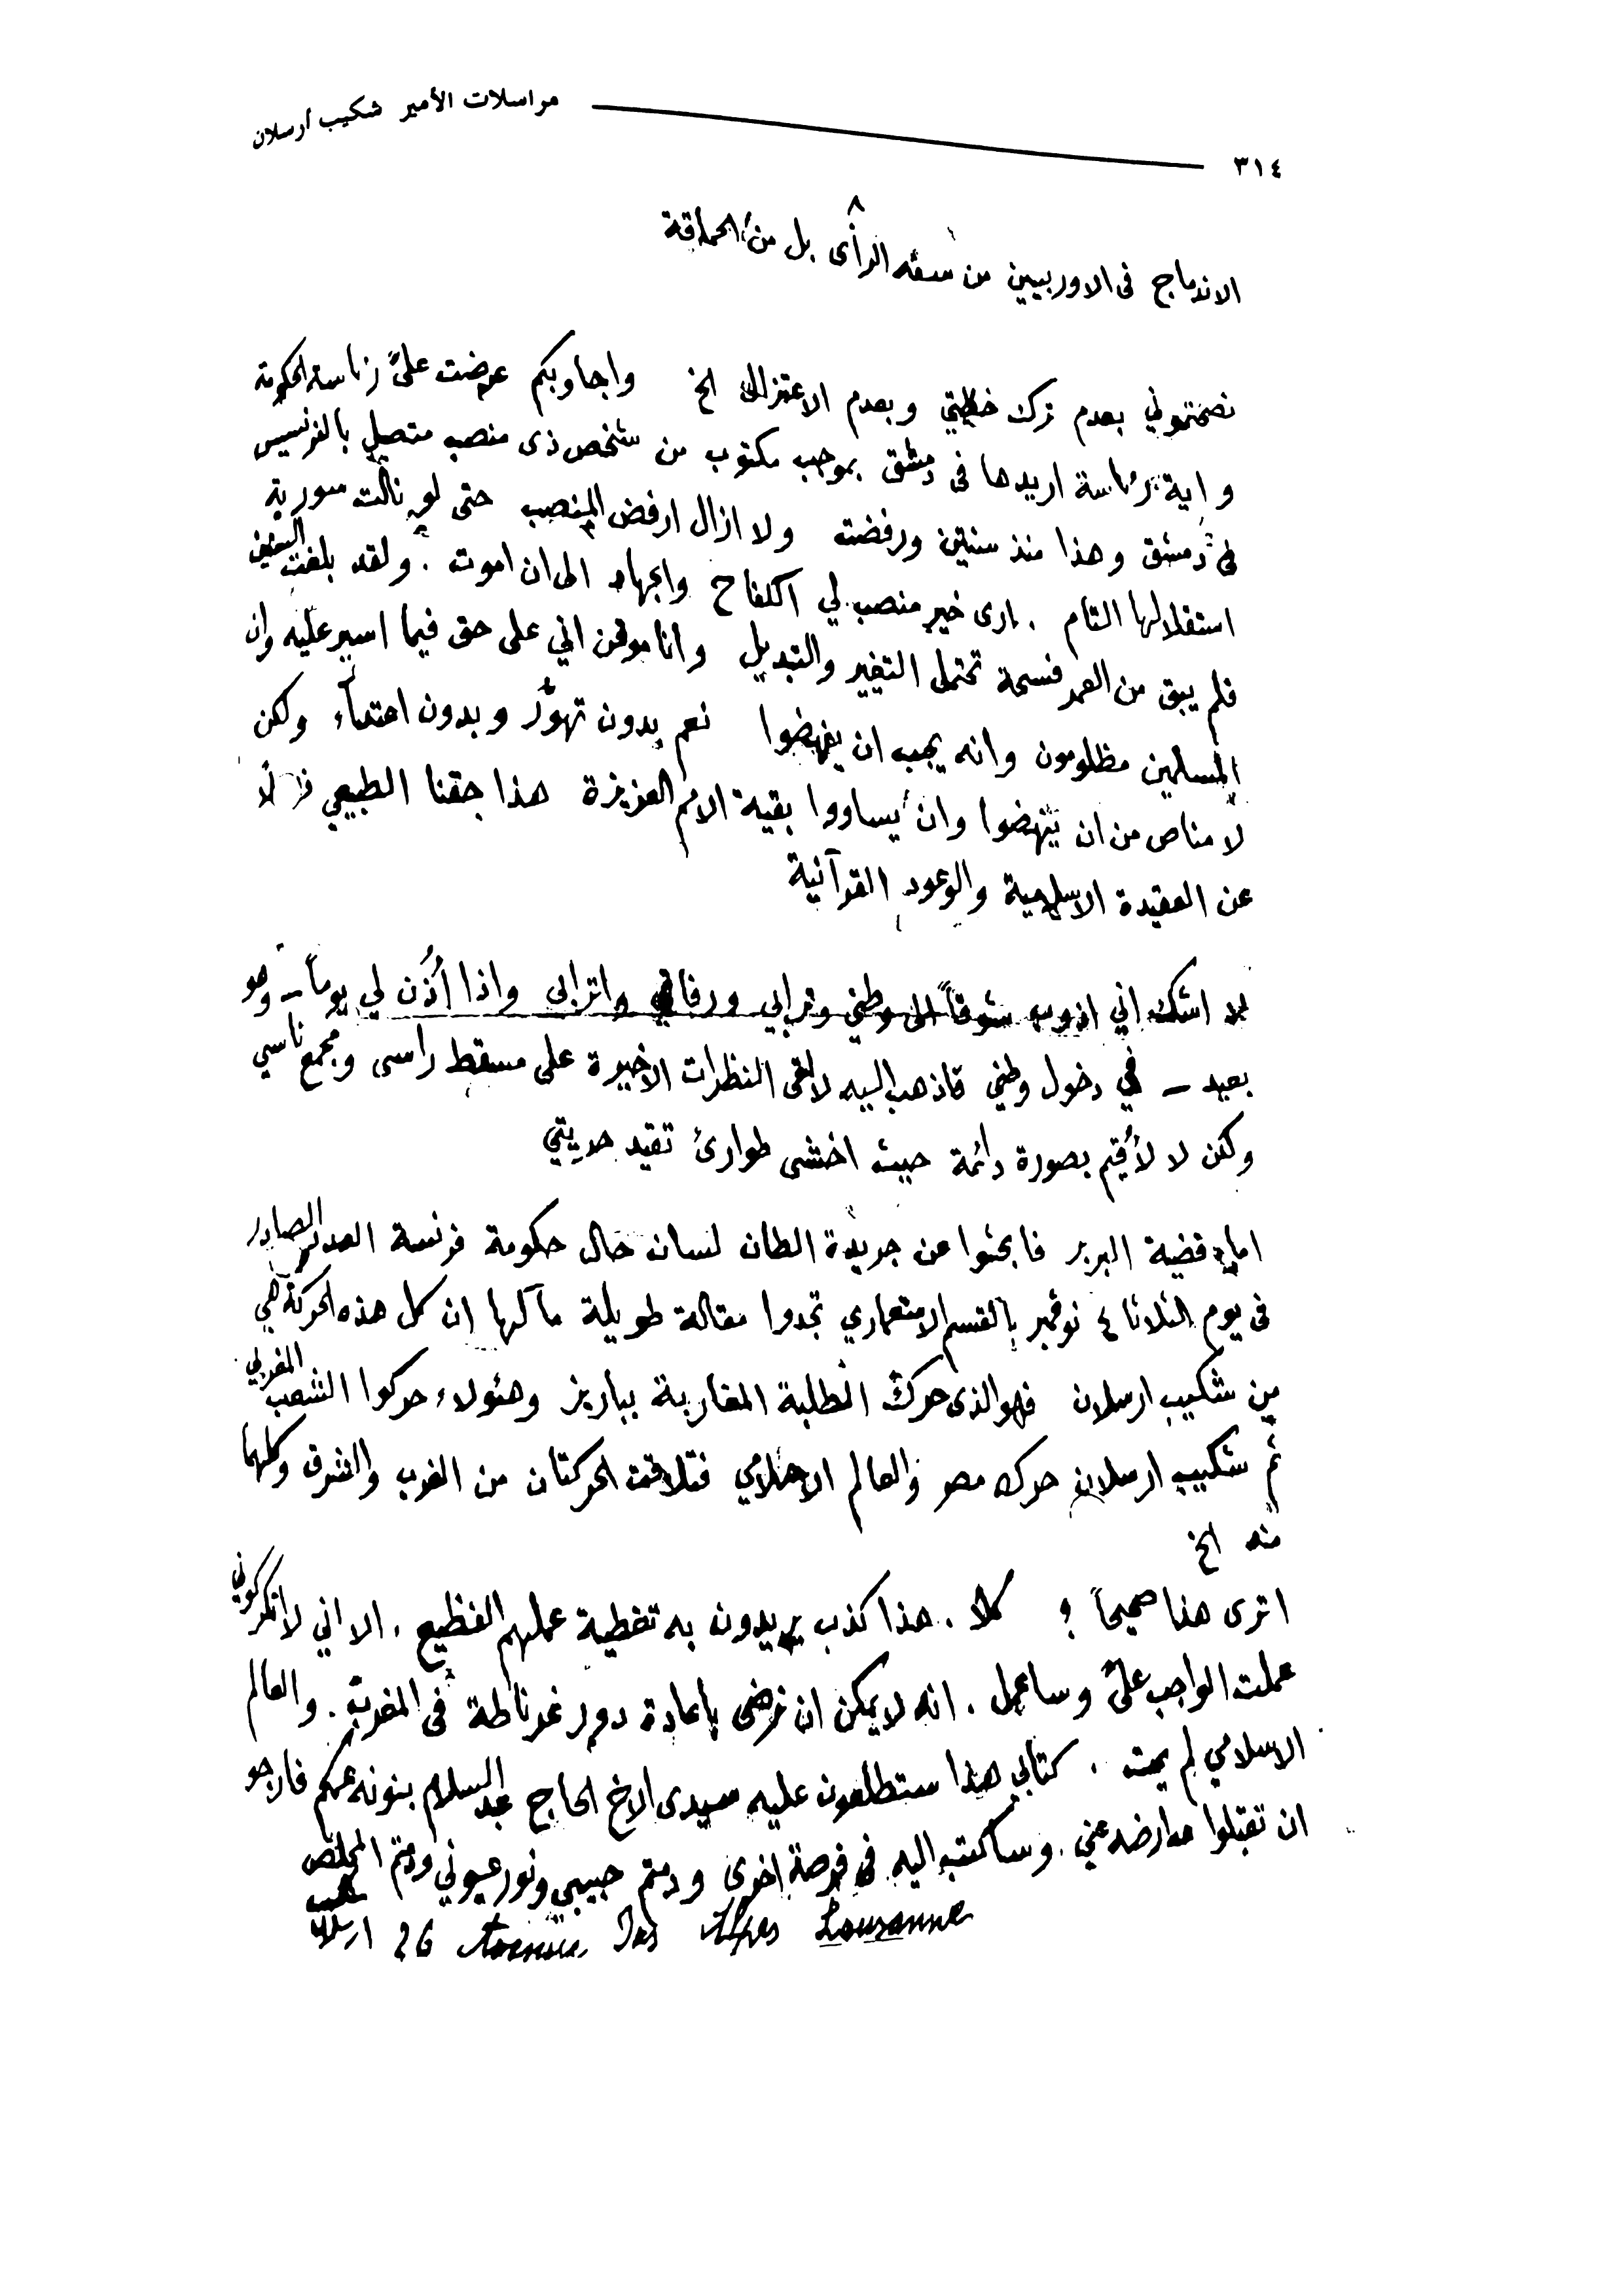 ٣١٤
مراسلات الأمير شكيب أرسلان
٨
الاندماج فى الاوربيين من سفه الرأى بل من الحماقة
نصحتموني بعدم ترك خطتي وبعدم الاعتزال الخ واجاوبكم عرضت علىّ رئاسة الحكومة
واية رئاسة اريدها فى دمشق بموجب مكتوب من شخص ذى منصب متصل بالفرنسيس
فى دمشق وهذا منذ سنتين ورفضته ولا ازال ارفض المنصب حتى لو نالت سورية
استقلالها التام . ارى خير منصب لي الكفاح والجهاد الى ان اموت . ولقد بلغت
فلم يبق من العمر فسحة تحتمل التغيير والتبديل وانا موقن اني على حق فيما اسير عليه وان
المسلمين مظلومون وانه يجب ان ينهضوا نعم بدون تهوّر وبدون اعتداء ولكن
لا مناص من ان ينهضوا وان يساووا بقية الامم العزيزة هذا حقنا الطبيعي
عن العقيدة الاسلامية والوعود القرآنية
لا اشك اني اذوب شوقاً الى وطني وترابي ورفاقي واترابى واذا أُذن لي يوماً ــ وهو
بعيد ــ في دخول وطني فاذهب اليه لالقى النظرات الاخيرة على مسقط راسى ومجمع ناسي
ولكن لا لأُقيم بصورة دائمة حيث اخشى طوارئ تقيد حريتي
اما قضية البربر فابحثوا عن جريدة الطان لسان حال حكومة فرنسة العدد الصادر
فى يوم الثلاثا ٤ نوفمبر بالقسم الاستعماري تجدوا مقالة طويلة مآلها ان كل هذه الحركة هي
من شكيب ارسلان فهو الذى حرك الطلبة المغاربة بباريز وهئولاء حركوا الشعب المغربي
ثم شكيب ارسلان حرك مصر والعالم الاسلامي فتلاقت الحركتان من الغرب والشرق وكلهما
منه الخ
اترى هذا صحيحاً ؟ كلا . هذا كذب يريدون به تغطية عملهم الفظيع . الا اني لا انكر كوني
عملت الواجب علىّ وساعمل . انه لا يمكن ان نرضى باعادة دور غرناطة فى المغرب . والعالم
الاسلامي لم يمت . كتابي هذا ستطلعون عليه سيدى الاخ الحاج عبد السلام بنونه عمكم فارجو
ان تقبلوا عوارضه عني . وساكتب اليه فى فرصة اخرى ودمتم حبيبي ونور عيوني ودمتم المخلص
شكيب
ارسلان 26 Avenue Des Alpes Lausanne